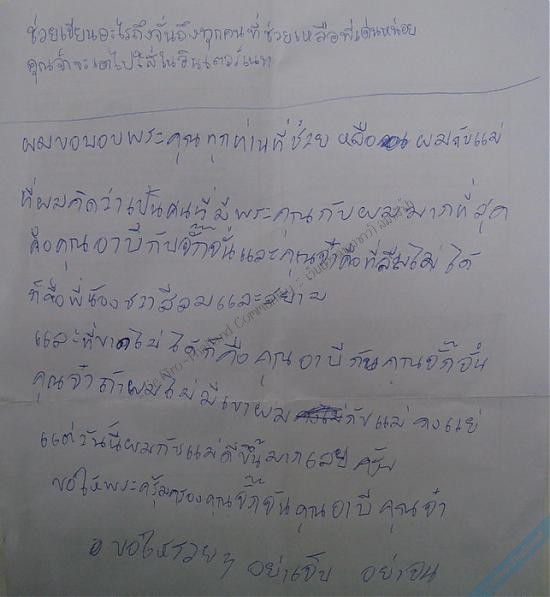 ช่วยเขียนอะไรถึงจั่นถึงทุกคนที่ช่วยเหลือพี่เด่นหน่อย
คุณจ๋าจะเอาไปใส่ในอินเตอร์เนท
ผมขอบอบพระคุณทุกท่านที่ช่วย หลือ ผมกับแม่
ที่ผมคิดว่าเป็นคนที่มีพระคุณกับผมมากที่สุด
คือคุณอาบีกับจั๊กจั่นและคุณจ๋าคือที่ลืมไม่ได้
ก็คือพี่น้องชาวสีลมและสยาม
และที่ขาดไม่ได้ก็คือ คุณอาบีกับคุณจั๊กจั่น
คุณจ๋าถ้าผมไม่มีเขาผม กับแม่ คงแย่
แต่วันนี้ผมกับแม่ดีขึ้นมากเลย ครับ
ขอให้พระคุ้มครองคุณจั๊กจั่นคุณอาบีคุณจ๋า
ขอให้รวยๆ อย่าเจ็บ อย่าจน